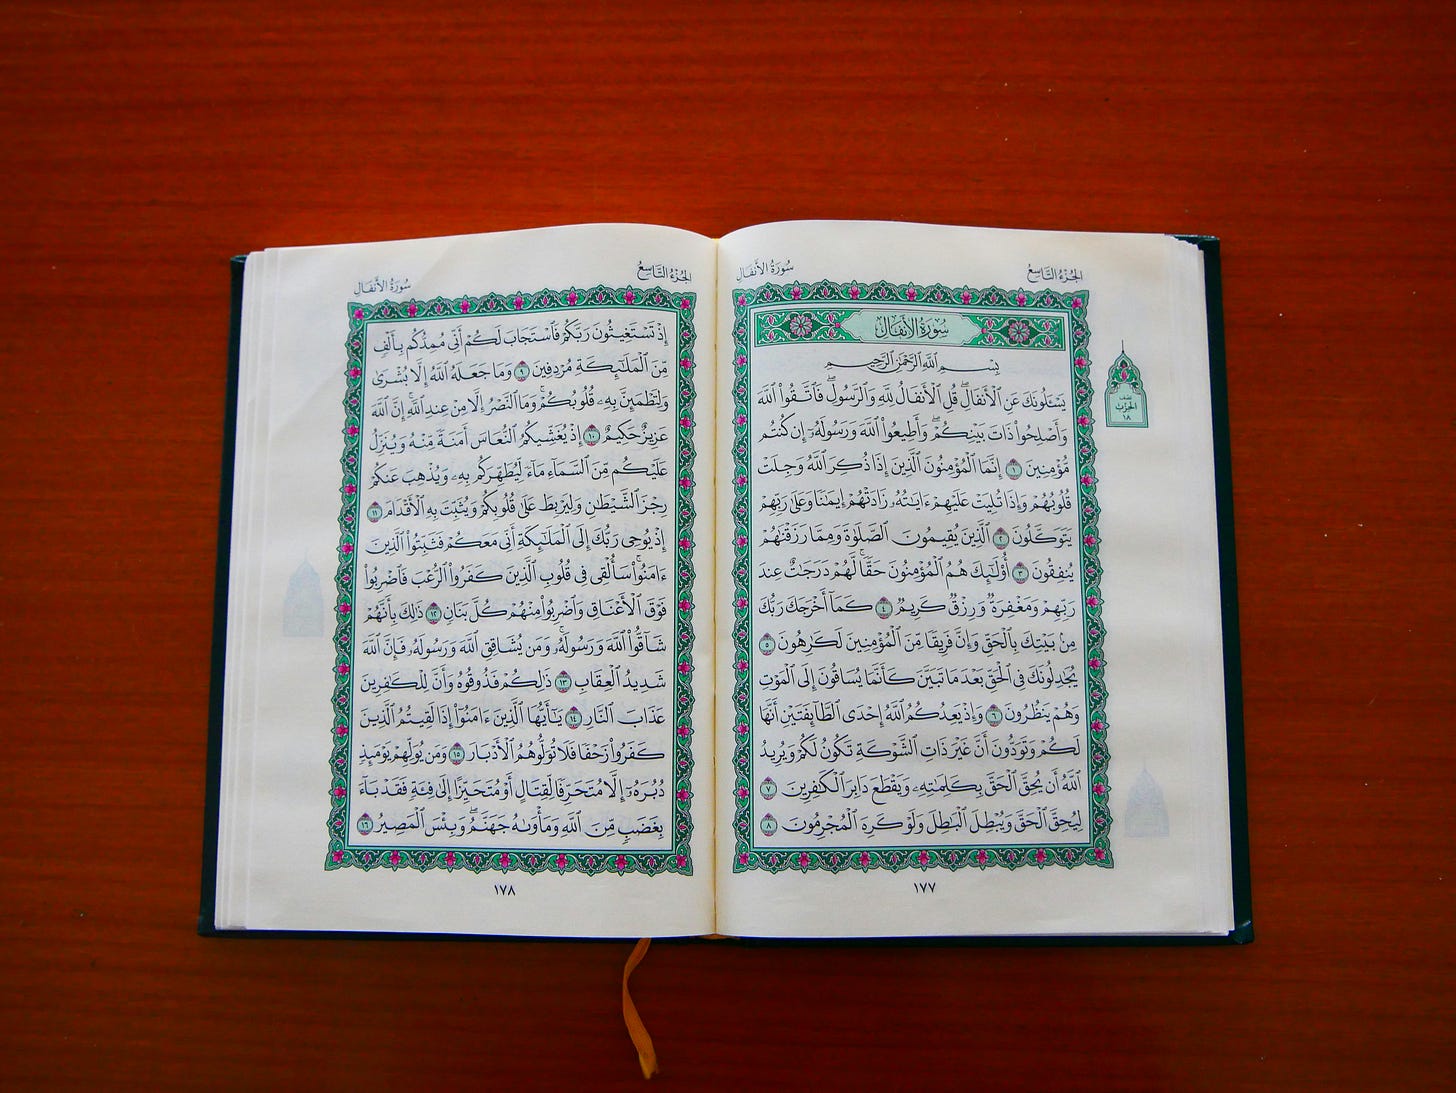 الجُزْءُ التَّاسِعُ
سُورَةُ الأَنفَالِ
سُورَةُ الأَنفَالِ
بِسْمِ ٱللَّهِ ٱلرَّحْمَٰنِ ٱلرَّحِيمِ
يَسْـَٔلُونَكَ عَنِ ٱلْأَنفَالِ ۖ قُلِ ٱلْأَنفَالُ لِلَّهِ وَٱلرَّسُولِ ۖ فَٱتَّقُوا۟ ٱللَّهَ
وَأَصْلِحُوا۟ ذَاتَ بَيْنِكُمْ ۖ وَأَطِيعُوا۟ ٱللَّهَ وَرَسُولَهُۥٓ إِن كُنتُم
مُّؤْمِنِينَ ١ إِنَّمَا ٱلْمُؤْمِنُونَ ٱلَّذِينَ إِذَا ذُكِرَ ٱللَّهُ وَجِلَتْ
قُلُوبُهُمْ وَإِذَا تُلِيَتْ عَلَيْهِمْ ءَايَٰتُهُۥ زَادَتْهُمْ إِيمَٰنًا وَعَلَىٰ رَبِّهِمْ
يَتَوَكَّلُونَ ٢ ٱلَّذِينَ يُقِيمُونَ ٱلصَّلَوٰةَ وَمِمَّا رَزَقْنَٰهُمْ
يُنفِقُونَ ٣ أُو۟لَٰٓئِكَ هُمُ ٱلْمُؤْمِنُونَ حَقًّا ۚ لَّهُمْ دَرَجَٰتٌ عِندَ
رَبِّهِمْ وَمَغْفِرَةٌ وَرِزْقٌ كَرِيمٌ ٤ كَمَآ أَخْرَجَكَ رَبُّكَ
مِنۢ بَيْتِكَ بِٱلْحَقِّ وَإِنَّ فَرِيقًا مِّنَ ٱلْمُؤْمِنِينَ لَكَٰرِهُونَ ٥
يُجَٰدِلُونَكَ فِى ٱلْحَقِّ بَعْدَ مَا تَبَيَّنَ كَأَنَّمَا يُسَاقُونَ إِلَى ٱلْمَوْتِ
وَهُمْ يَنظُرُونَ ٦ وَإِذْ يَعِدُكُمُ ٱللَّهُ إِحْدَى ٱلطَّآئِفَتَيْنِ أَنَّهَا
لَكُمْ وَتَوَدُّونَ أَنَّ غَيْرَ ذَاتِ ٱلشَّوْكَةِ تَكُونُ لَكُمْ وَيُرِيدُ
ٱللَّهُ أَن يُحِقَّ ٱلْحَقَّ بِكَلِمَٰتِهِۦ وَيَقْطَعَ دَابِرَ ٱلْكَٰفِرِينَ ٧
لِيُحِقَّ ٱلْحَقَّ وَيُبْطِلَ ٱلْبَٰطِلَ وَلَوْ كَرِهَ ٱلْمُجْرِمُونَ ٨
١٧٧
نصف
الحزب
١٨
الجُزْءُ التَّاسِعُ
سُورَةُ الأَنفَالِ
إِذْ تَسْتَغِيثُونَ رَبَّكُمْ فَٱسْتَجَابَ لَكُمْ أَنِّى مُمِدُّكُم بِأَلْفٍ
مِّنَ ٱلْمَلَٰٓئِكَةِ مُرْدِفِينَ ٩ وَمَا جَعَلَهُ ٱللَّهُ إِلَّا بُشْرَىٰ
وَلِتَطْمَئِنَّ بِهِۦ قُلُوبُكُمْ ۚ وَمَا ٱلنَّصْرُ إِلَّا مِنْ عِندِ ٱللَّهِ ۚ إِنَّ ٱللَّهَ
عَزِيزٌ حَكِيمٌ ١٠ إِذْ يُغَشِّيكُمُ ٱلنُّعَاسَ أَمَنَةً مِّنْهُ وَيُنَزِّلُ
عَلَيْكُم مِّنَ ٱلسَّمَآءِ مَآءً لِّيُطَهِّرَكُم بِهِۦ وَيُذْهِبَ عَنكُمْ
رِجْزَ ٱلشَّيْطَٰنِ وَلِيَرْبِطَ عَلَىٰ قُلُوبِكُمْ وَيُثَبِّتَ بِهِ ٱلْأَقْدَامَ ١١
إِذْ يُوحِى رَبُّكَ إِلَى ٱلْمَلَٰٓئِكَةِ أَنِّى مَعَكُمْ فَثَبِّتُوا۟ ٱلَّذِينَ
ءَامَنُوا۟ ۚ سَأُلْقِى فِى قُلُوبِ ٱلَّذِينَ كَفَرُوا۟ ٱلرُّعْبَ فَٱضْرِبُوا۟
فَوْقَ ٱلْأَعْنَاقِ وَٱضْرِبُوا۟ مِنْهُمْ كُلَّ بَنَانٍ ١٢ ذَٰلِكَ بِأَنَّهُمْ
شَآقُّوا۟ ٱللَّهَ وَرَسُولَهُۥ ۚ وَمَن يُشَاقِقِ ٱللَّهَ وَرَسُولَهُۥ فَإِنَّ ٱللَّهَ
شَدِيدُ ٱلْعِقَابِ ١٣ ذَٰلِكُمْ فَذُوقُوهُ وَأَنَّ لِلْكَٰفِرِينَ
عَذَابَ ٱلنَّارِ ١٤ يَٰٓأَيُّهَا ٱلَّذِينَ ءَامَنُوٓا۟ إِذَا لَقِيتُمُ ٱلَّذِينَ
كَفَرُوا۟ زَحْفًا فَلَا تُوَلُّوهُمُ ٱلْأَدْبَارَ ١٥ وَمَن يُوَلِّهِمْ يَوْمَئِذٍ
دُبُرَهُۥٓ إِلَّا مُتَحَرِّفًا لِّقِتَالٍ أَوْ مُتَحَيِّزًا إِلَىٰ فِئَةٍ فَقَدْ بَآءَ
بِغَضَبٍ مِّنَ ٱللَّهِ وَمَأْوَىٰهُ جَهَنَّمُ ۖ وَبِئْسَ ٱلْمَصِيرُ ١٦
١٧٨